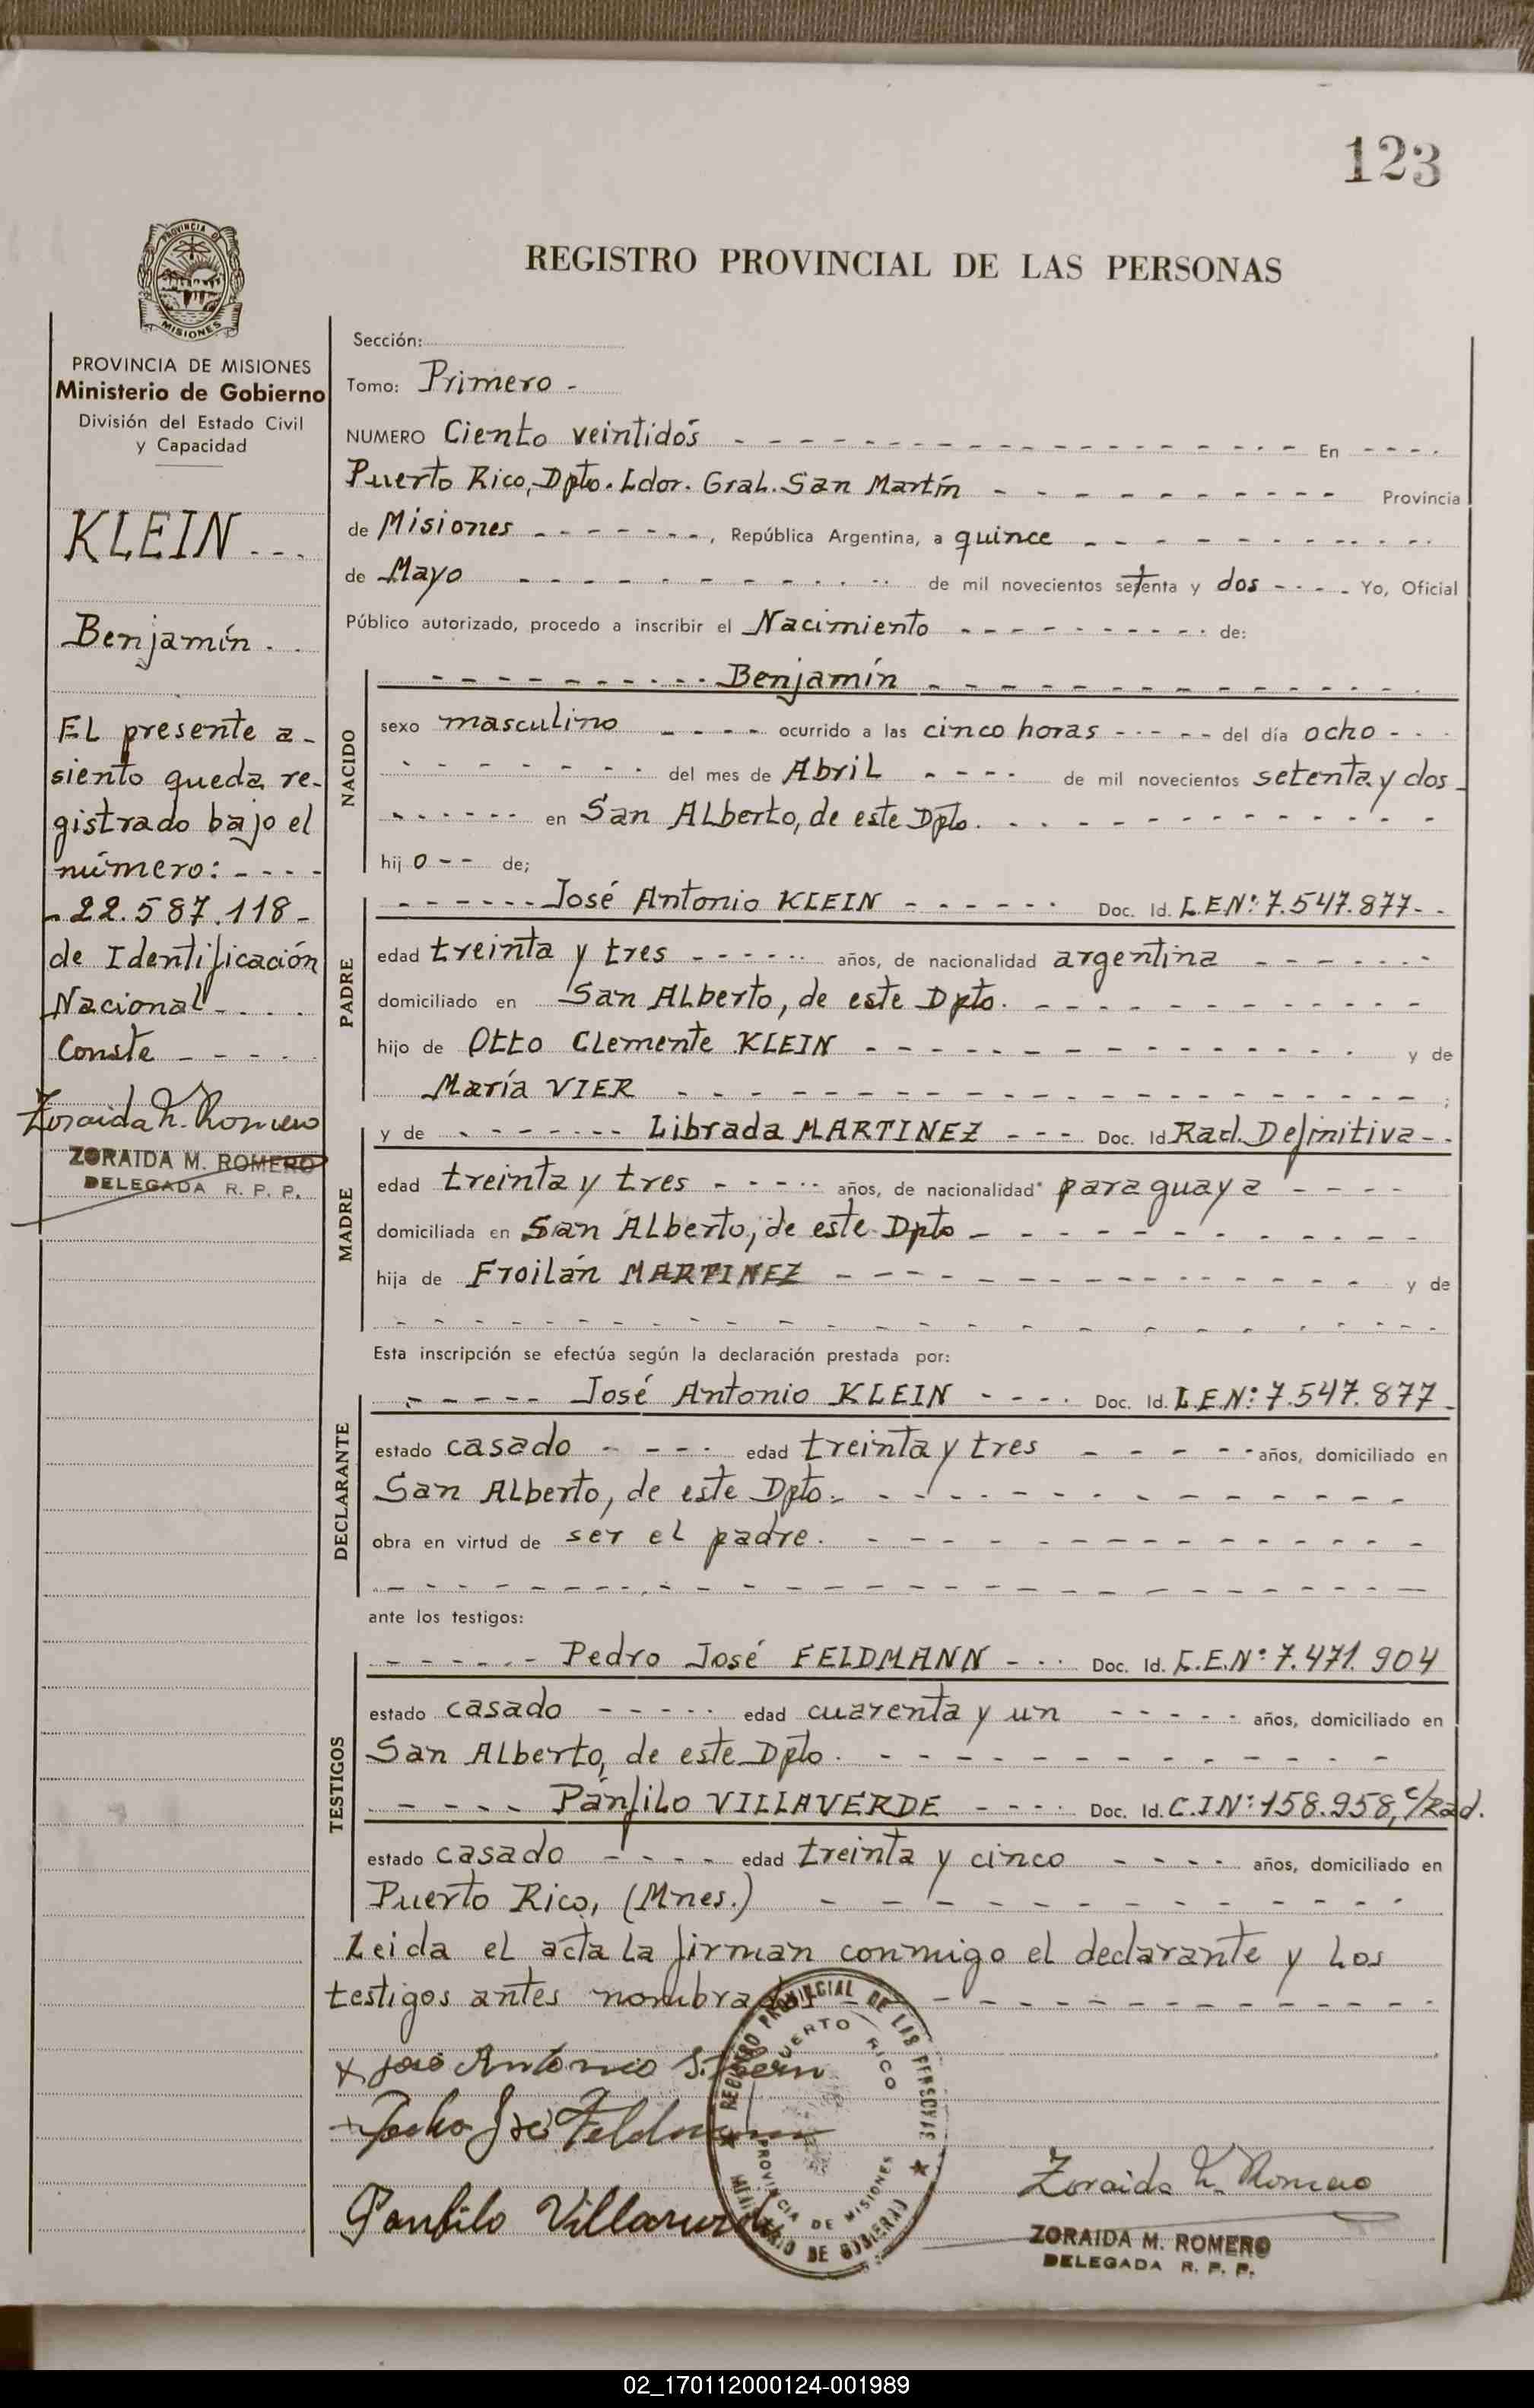 123
REGISTRO PROVINCIAL DE LAS PERSONAS
PROVINCIA DE
MISIONES
PROVINCIA DE MISIONES
Ministerio de Gobierno
División del Estado Civil
y Capacidad
KLEIN - - -
Benjamín - -
EL presente a-
siento queda re-
gistrado bajo el
número: - - - -
- 22.587.118 -
de Identificación
Nacional - - - -
Conste - - - -
Zoraida M. Romero
ZORAIDA M. ROMERO
DELEGADA R. P. P.
Sección:
Tomo: Primero -
NUMERO Ciento veintidós - - - - En - - - -
Puerto Rico, Dpto. Ldor. Gral. San Martín - - - - Provincia
de Misiones - - - -, República Argentina, a quince - - - -
de Mayo - - - - de mil novecientos setenta y dos - - - - Yo, Oficial
Público autorizado, procedo a inscribir el Nacimiento - - - - de:
NACIDO
- - - - Benjamín - - - -
sexo masculino - - - - ocurrido a las cinco horas - - - - del día ocho - - -
- - - - del mes de Abril - - - - de mil novecientos setenta y dos -
- - - - en San Alberto, de este Dpto. - - - -
hij o - - de;
PADRE
- - - - José Antonio KLEIN - - - - Doc. Id. L.E.Nº: 7.547.877 - -
edad treinta y tres - - - - años, de nacionalidad argentina - - - -
domiciliado en San Alberto, de este Dpto. - - - -
hijo de Otto Clemente KLEIN - - - - y de
María VIER - - - - ;
MADRE
y de - - - - Librada MARTINEZ - - - Doc. Id. Rad. Definitiva - -
edad treinta y tres - - - - años, de nacionalidad paraguaya - - - -
domiciliada en San Alberto, de este Dpto - - - -
hija de Froilán MARTINEZ - - - - y de
- - - -
Esta inscripción se efectúa según la declaración prestada por:
DECLARANTE
- - - - José Antonio KLEIN - - - - Doc. Id. L.E.Nº: 7.547.877 -
estado casado - - - - edad treinta y tres - - - - años, domiciliado en
San Alberto, de este Dpto. - - - -
obra en virtud de ser el padre. - - - -
- - - -
ante los testigos:
TESTIGOS
- - - - Pedro José FELDMANN - - - Doc. Id. L.E.Nº: 7.471.904
estado casado - - - - edad cuarenta y un - - - - años, domiciliado en
San Alberto, de este Dpto. - - - -
- - - - Pánfilo VILLAVERDE - - - - Doc. Id. C.I Nº: 158.958, c/Rad.
estado casado - - - - edad treinta y cinco - - - - años, domiciliado en
Puerto Rico, (Mnes.) - - - -
Leida el acta la firman conmigo el declarante y los
testigos antes nombrados - - - -
REGISTRO PROVINCIAL DE LAS PERSONAS
PUERTO RICO
PROVINCIA DE MISIONES
MINISTERIO DE GOBIERNO
x José Antonio
Pedro José Feldmann
Panfilo Villaverde
Zoraida M. Romero
ZORAIDA M. ROMERO
DELEGADA R. P. P.
02_170112000124-001989